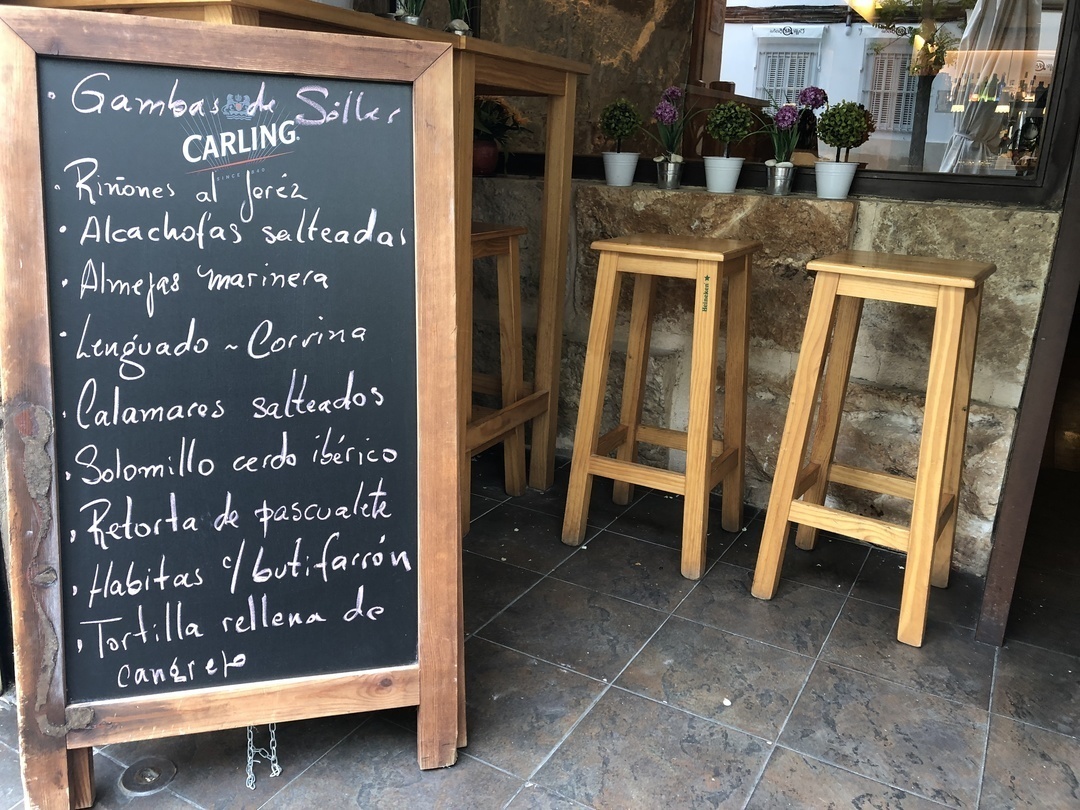 · Gambas de Söller
CARLING
SINCE 1840
· Riñones al Jeréz
· Alcachofas salteadas
· Almejas marinera
· Lenguado ~ Corvina
· Calamares salteados
· Solomillo cerdo ibérico
· Retorta de pascualete
· Habitas c/ butifarrón
· Tortilla rellena de
cangrejo
Heineken